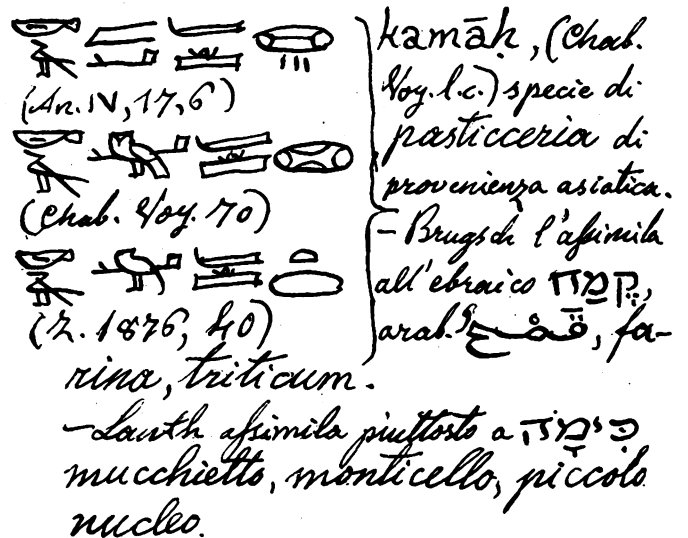 (An. IV, 17, 6)
(Chab. Voy. 70)
(Z. 1876, 40)
kamāḥ, (Chab.
Voy. l.c.) specie di
pasticceria di
provenienza asiatica.
– Brugsch l'assimila
all'ebraico קֶמַח,
arab. قمح, fa-
rina, triticum.
– Lauth assimila piuttosto a כִּימָה
mucchietto, monticello, piccolo
nucleo.